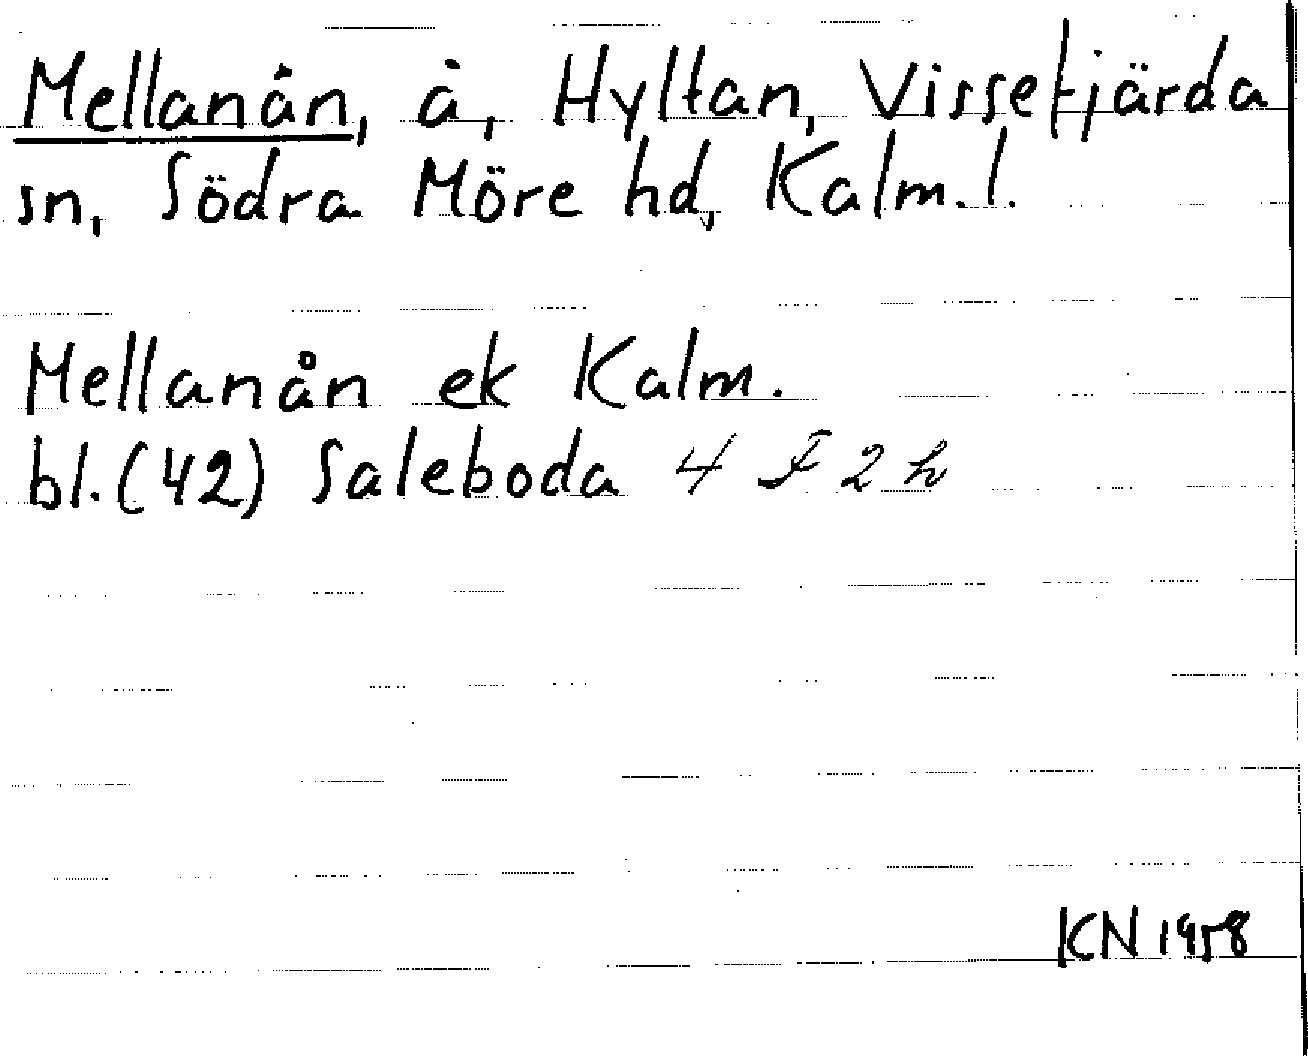 Mellanån, å, Hyltan, Vissefjärda
sn, Södra Möre hd, Kalm.l.
Mellanån ek Kalm.
bl. (42) Saleboda 4 F 2 h
KN 1958